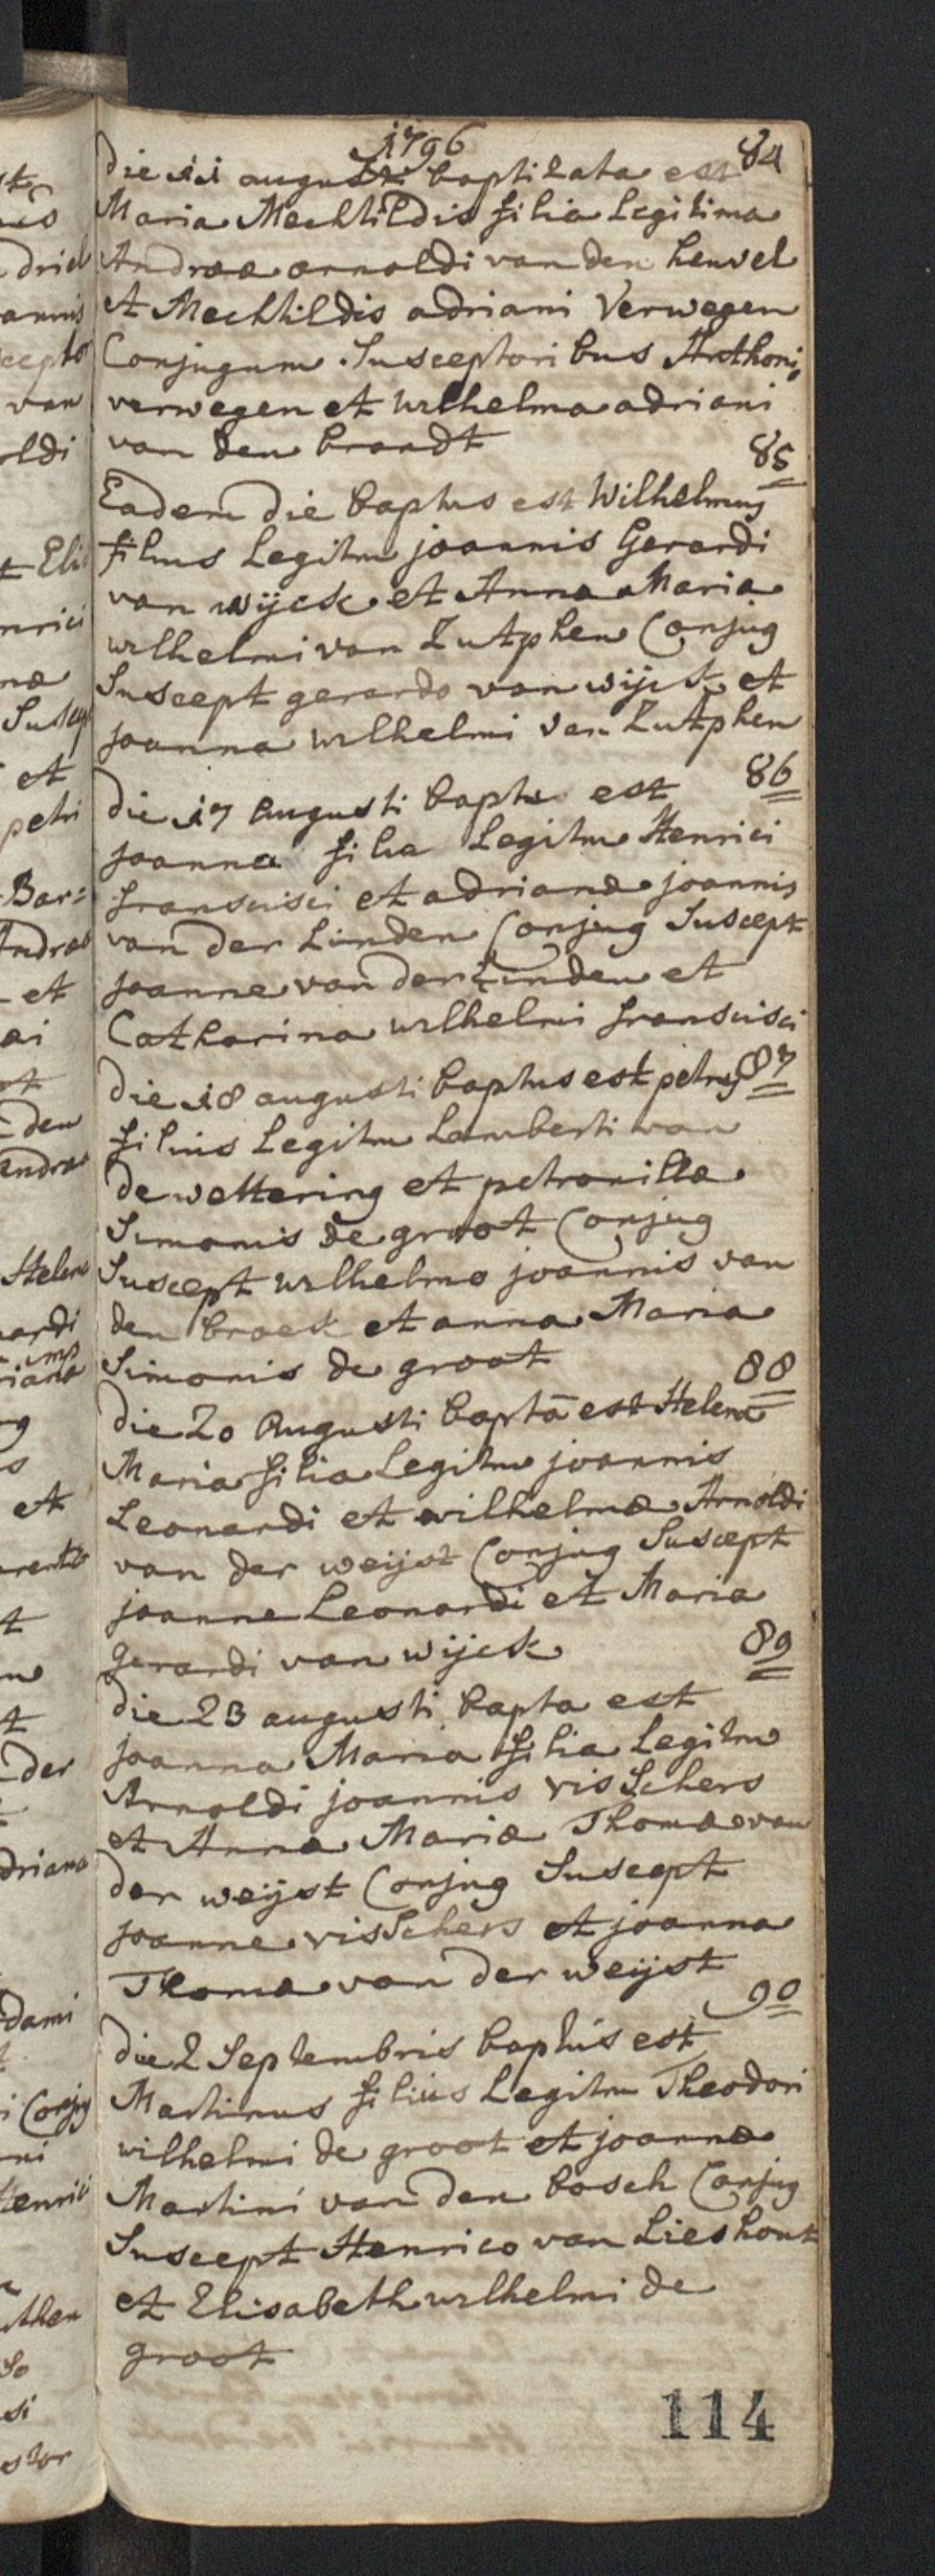 1796
84
die 11 augusti baptizata est
Maria Mechtildis filia Legitima
Andreæ arnoldi van den heuvel
et Mechtildis adriani Verwegen
Conjugum Susceptoribus Anthonio
verwegen et wilhelma adriani
van den brandt
85
Eadem die baptus est Wilhelmus
filius Legitm joannis Gerardi
van wijck et Anna Maria
wilhelmi van Zutphen Conjug
Suscept gerardo van wijck et
joanna wilhelmi van Zutphen
86
die 17 augusti bapta est
joanna filia Legitm Henrici
francisci et adrianæ joannis
van der Linden Conjug Suscept
joanne van der Linden et
Catharina wilhelmi francisci
87
die 18 augusti baptus est petrus
filius Legitm Lamberti van
de wettering et petronilla
Simonis de groot Conjug
Suscept wilhelmo joannis van
den broek et anna Maria
Simonis de groot
88
die 20 Augusti bapta est Helena
Maria filia Legitm joannis
Leonardi et wilhelmæ Arnoldi
van der weijst Conjug Suscept
joanne Leonardi et Maria
gerardi van wijck
89
die 23 augusti bapta est
joanna Maria filia Legitm
Arnoldi joannis visschers
et Annæ Mariæ Thomæ van
der weijst Conjug Suscept
joanne visschers et joanna
Thomæ van der weijst
90
die 2 Septembris baptus est
Martinus filius Legitm Theodori
wilhelmi de groot et joannæ
Martini van den bosch Conjug
Suscept Henrico van Lieshout
et Elisabeth wilhelmi de
groot
114